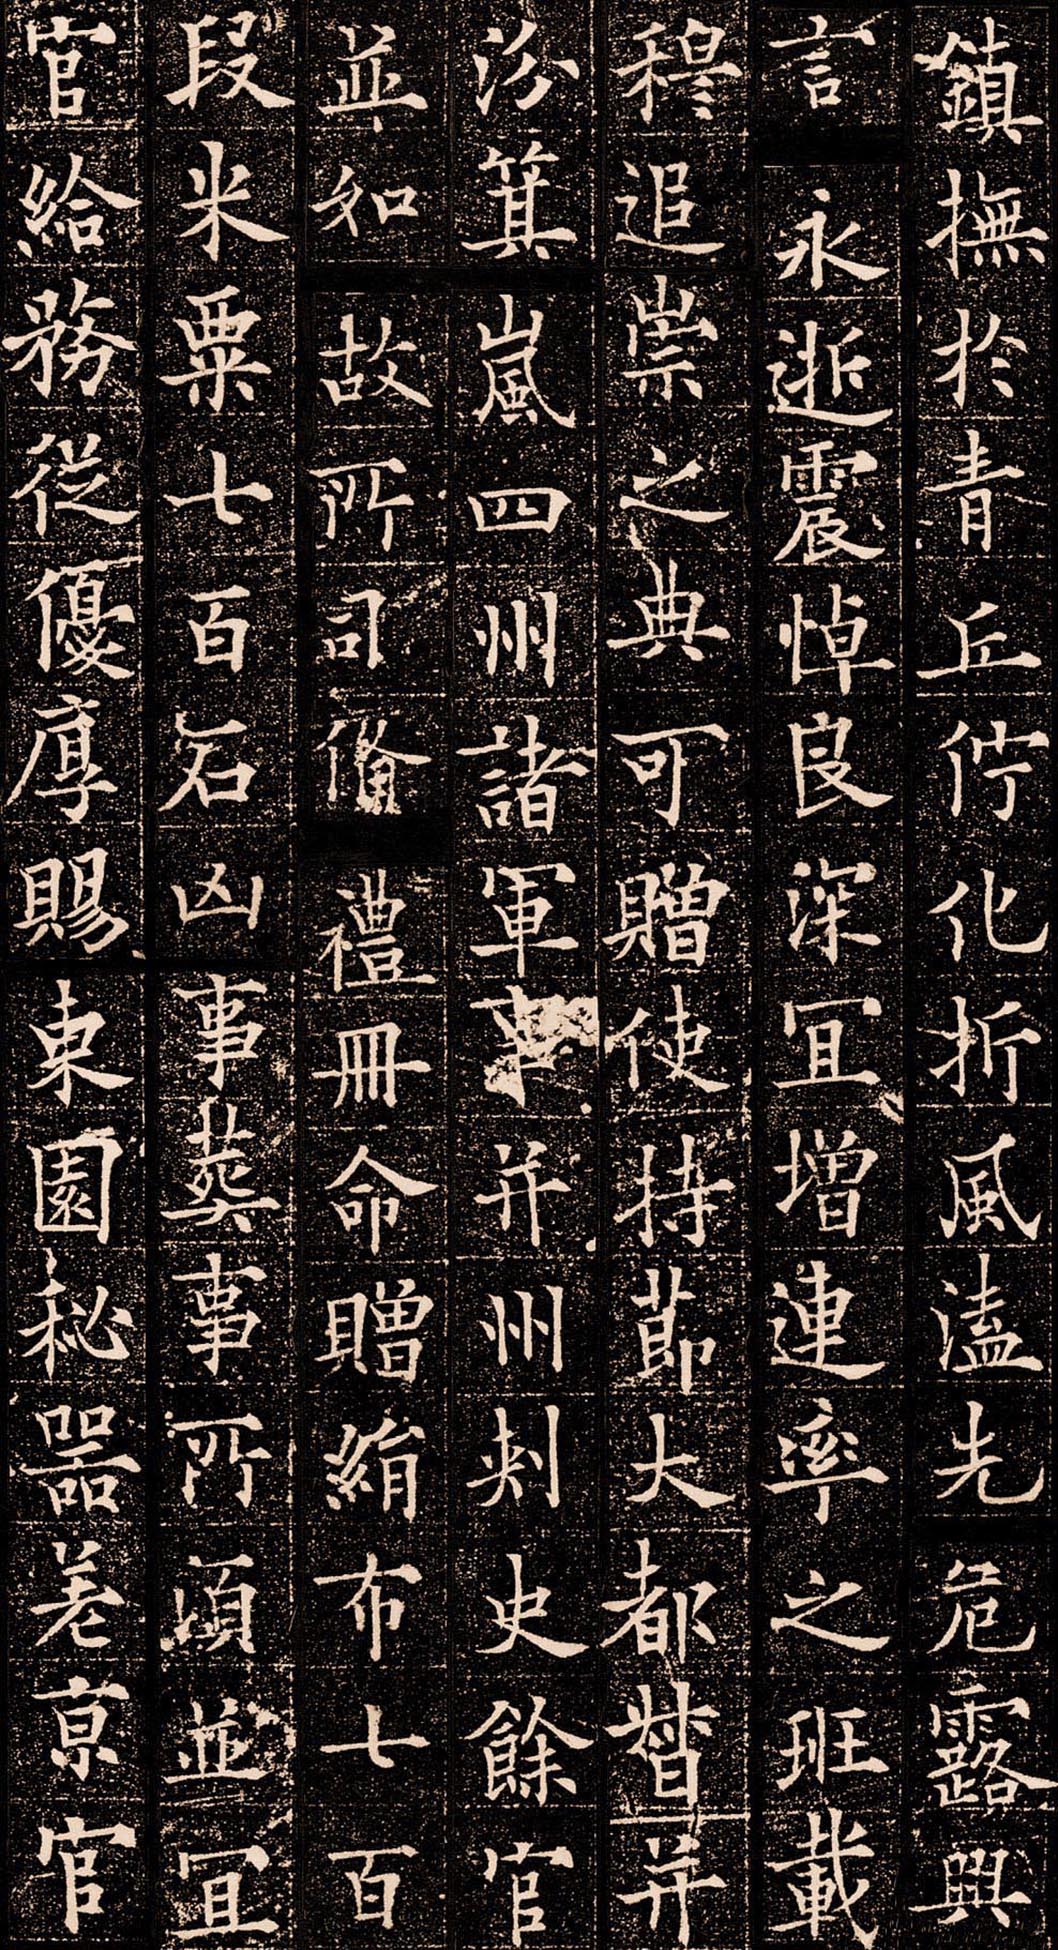 鎮撫於青丘佇化折風溘先危露興
言永逝震悼良深宜增連率之班載
穆追崇之典可贈使持節大都督并
汾箕嵐四州諸軍事并州刺史餘官
並如故所司備禮冊命贈絹布七百
段米粟七百石凶事葬事所須並宜
官給務從優厚賜東園秘器差京官